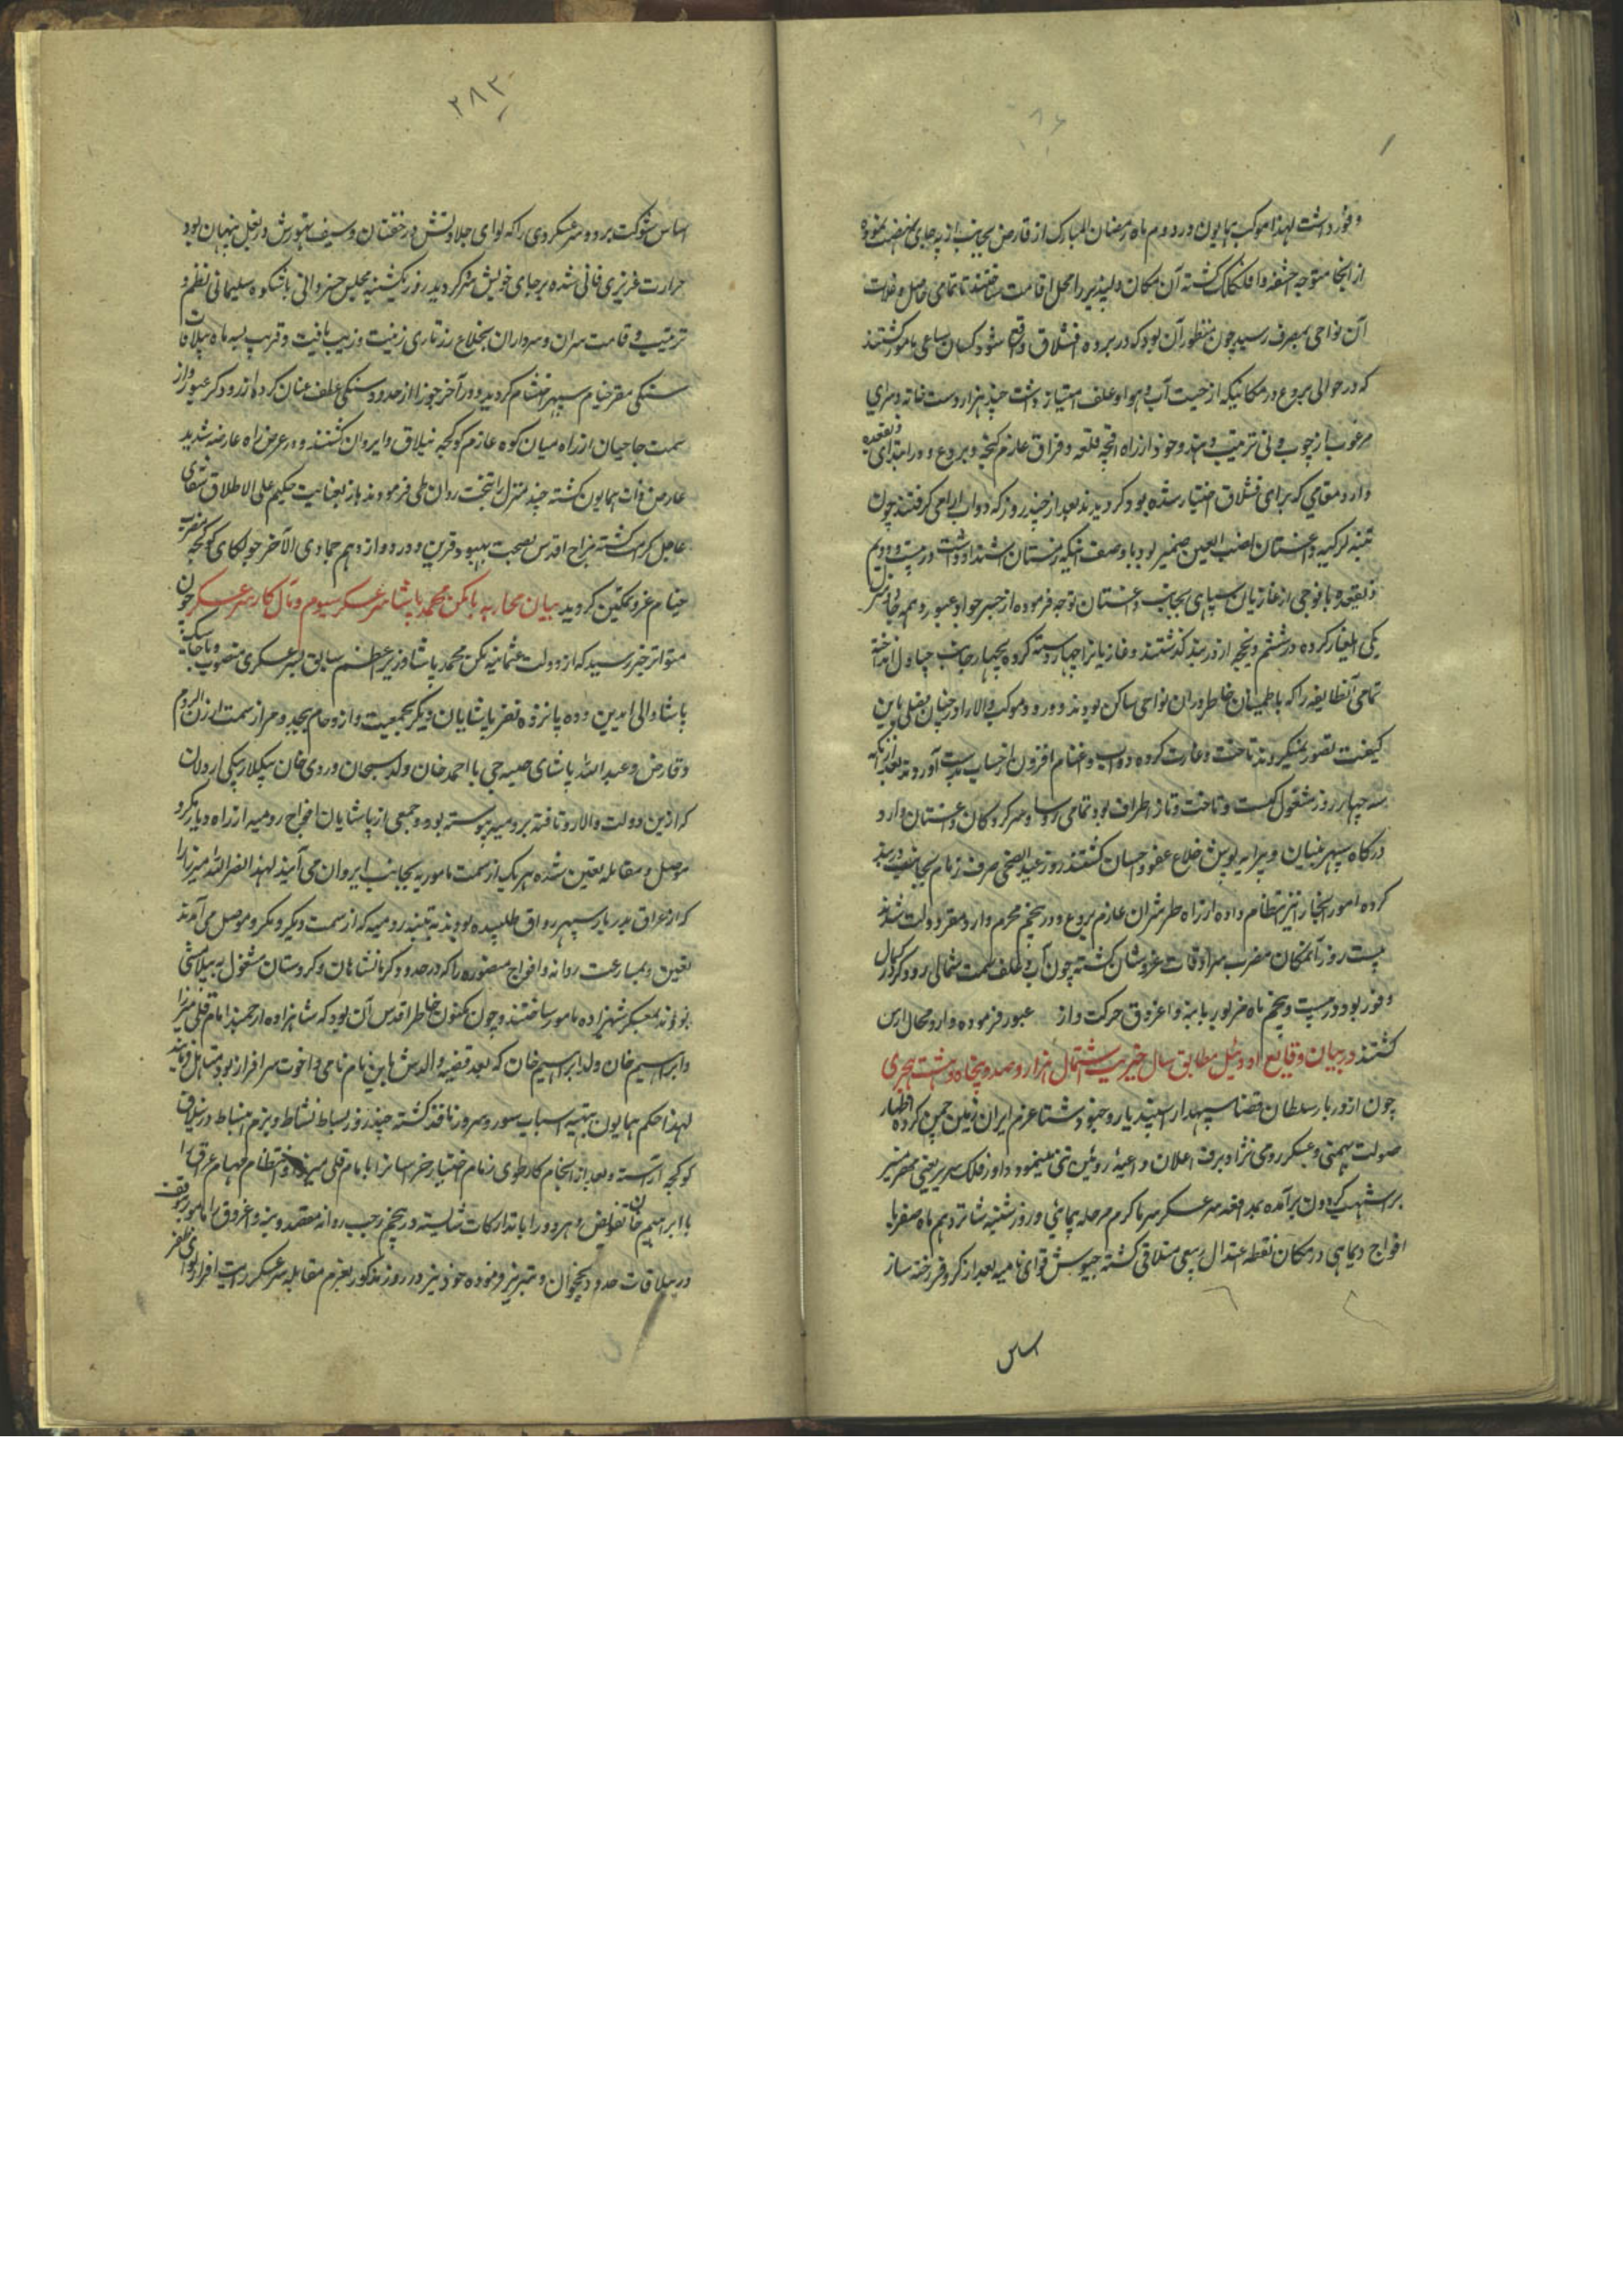 وفور داشت لهذا موکب همایون در دوم ماه رمضان المبارک از قارص بجانب ارپه چای نهضت نموده
از انجا متوجه آخسقه و آقلکلک کشته آن مکان دلپذیر را محل اقامت ساختند تا تمامی حاصل و غلات
آن نواحی بمصرف رسید چون منظور آن بود که در بردع قشلاق واقع شود کسان بساعی مامور کشتند
که در حوالی بردع در مکانیکه از حیثیت آب و هوا و علف امتیاز داشت چند هزار دست خانه و سرای
مرغوب از چوب و نی ترتیب دهند و خود از راه آقچه قلعه و قزاق عازم کنجه و بردع و در ابتدای ذیقعده
وارد مقامی که برای قشلاق اختیار شده بود کردیدند بعد از چند روز که دواب آرامی کرفتند چون
تنبیه لزکیه داغستان نصب العین ضمیر بود با وصف آنکه زمستان اشتداد داشت در بیست و دویم
ذیقعده با فوجی از غازیان سپاهی بجانب داغستان توجه فرموده از جسر جواد عبور و همه جا
یکی ایلغار کرده در ششم ذیحجه از دربند کذشتند و غازیانرا چهار دسته کرده بچهار جانب چپاول انداخته
تمامی آنطایفه را که باطمینان خاطر در ان نواحی ساکن بودند و ورود موکب والا را در چنان فصلی باین
کیفیت تصور نمیکردند تاخت و غارت کرده دواب و اغنام افزون از حساب بدست آوردند بعد از آنکه
سه چهار روز مشغول کشت و تاخت و تاز اطراف بود تمامی رؤسا و سرکردکان داغستان وارد
درکاه سپهر بنیان و پیرایه پوش خلاع عفو و احسان کشتند روز عید اضحی صرف زمام بجانب دربند
کرده امور انجا را نیز انتظام داده از راه طبرسران عازم بردع و در پنجم محرم وارد مقر دولت شدند
بیست روز آنمکان مضرب سرادقات عز و شان کشته چون آب و علف سمت شمالی رود کر در کمال
وفور بود در بیست و پنجم ماه مزبور با بنه و اغروق حرکت و از عبور فرموده وارد محال ارس
کشتند در بیان وقایع اودئیل مطابق سال خیریت اشتمال هزار و صد و پنجاه و هشت هجری
چون از دربار سلطان قضا سپهدار اسپندیار و جنود شتا عزم ایران زمین چمن کرده اظهار
صولت بهمنی و عسکر رومی نژاد برف اعلان داعیهٔ روئین تنی مینمود داور فلک سریر یعنی مهر منیر
بر اشهب کردون برآمده بمدافعه سرعسکر سرما کرم مرحله پیمائی و روز شنبه شانزدهم ماه صفر با
افواج دیماهی در مکان نقطهٔ اعتدال ربیعی متلاقی کشته جیوش قوای نامیه بعد از کر و فر رخنه ساز
اساس
۲۸۳
اساس شوکت برد و سرعسکر دی را که لوای جلادتش درختان و سیف تهورش در بغل پنهان بود
حرارت غریزی فانی شده بر جای خویش متمر کردید روز یکشنبه مجلس خسروانی باشکوه سلیمانی نظم و
ترتیب و قامت سران و سرداران بخلاع زرتاری زینت و زیب یافت و قریب بسه ماه ییلاقات
شکی مقر خیام سپهر احتشام کردید و در آخر جوزا از حدود شکی عطف عنان کرده از رود کر عبور و از
سمت حاجیان از راه میان کوه عازم کوکچه ییلاق و ایروان کشتند و در عرض راه عارضه شدید
عارض ذات همایون کشته چند منزل را بتخت روان طی فرمودند باز بعنایت حکیم علی الاطلاق شفای
عاجل کرامت کشته مزاج اقدس بصحت بهبود قرین و در دوازدهم جمادی الآخر جولکای کوکچه مضرب
خیام عز و تمکین کردید بیان محاربه با یکن محمد پاشا سرعسکر سیوم و مآل کار سرعسکر چون
متواتر خبر رسید که از دولت عثمانیه یکن محمد پاشا وزیر اعظم سابق بسرعسکری منصوب و با
پاشا والی آیدین و ده پانزده نفر پاشایان دیکر بجمعیت و ازدحام بیحد و مر از سمت ارزن الروم
و قارص و عبدالله پاشای جبه چی با احمد خان ولد سبحان وردی خان بیکلربیکی اردلان
که ازین دولت والا رو تافته برومیه پیوسته بود و جمعی از پاشایان افواج رومیه از راه دیاربکر و
موصل و مقابله تعیین شده هر یک از سمت مامور به بجانب ایروان می آمدند لهذا نصرالله میرزا را
که از عراق بدربار سپهر رواق طلبیده بودند به تنبیه رومیه که از سمت دیکر و موصل می آمدند
تعیین و بسرعت روانه و افواج منصوره را که در حدود کرمانشاهان و کردستان مشغول ییلامشی
بودند بعسکر شهزاده مامور ساختند و چون مکنون خاطر اقدس آن بود که شاهزاده ارجمند امام قلی میرزا
و ابراهیم خان ولد ابراهیم خان که بعد قضیه والدش باین نام نامی و اخوت سرافراز بود متاهل فرمایند
لهذا حکم همایون بتهیه اسباب سور و سرور نافذ کشته چند روز بساط نشاط و بزم انبساط در ییلاق
کوکچه آراسته و بعد از انجام کار طوی زمام اختیار خراسانرا بامام قلی میرزا و انتظام مهام عراق را
با ابراهیم خان تفویض و هر دو را با تدارکات شایسته در پنجم رجب روانه مقصد و بنه و اغروق را مامور بتوقف
در ییلاقات حدود نخجوان و تبریز فرموده خود نیز در روز مذکور بعزم مقابله سرعسکر رایت افراز لوای ظفر